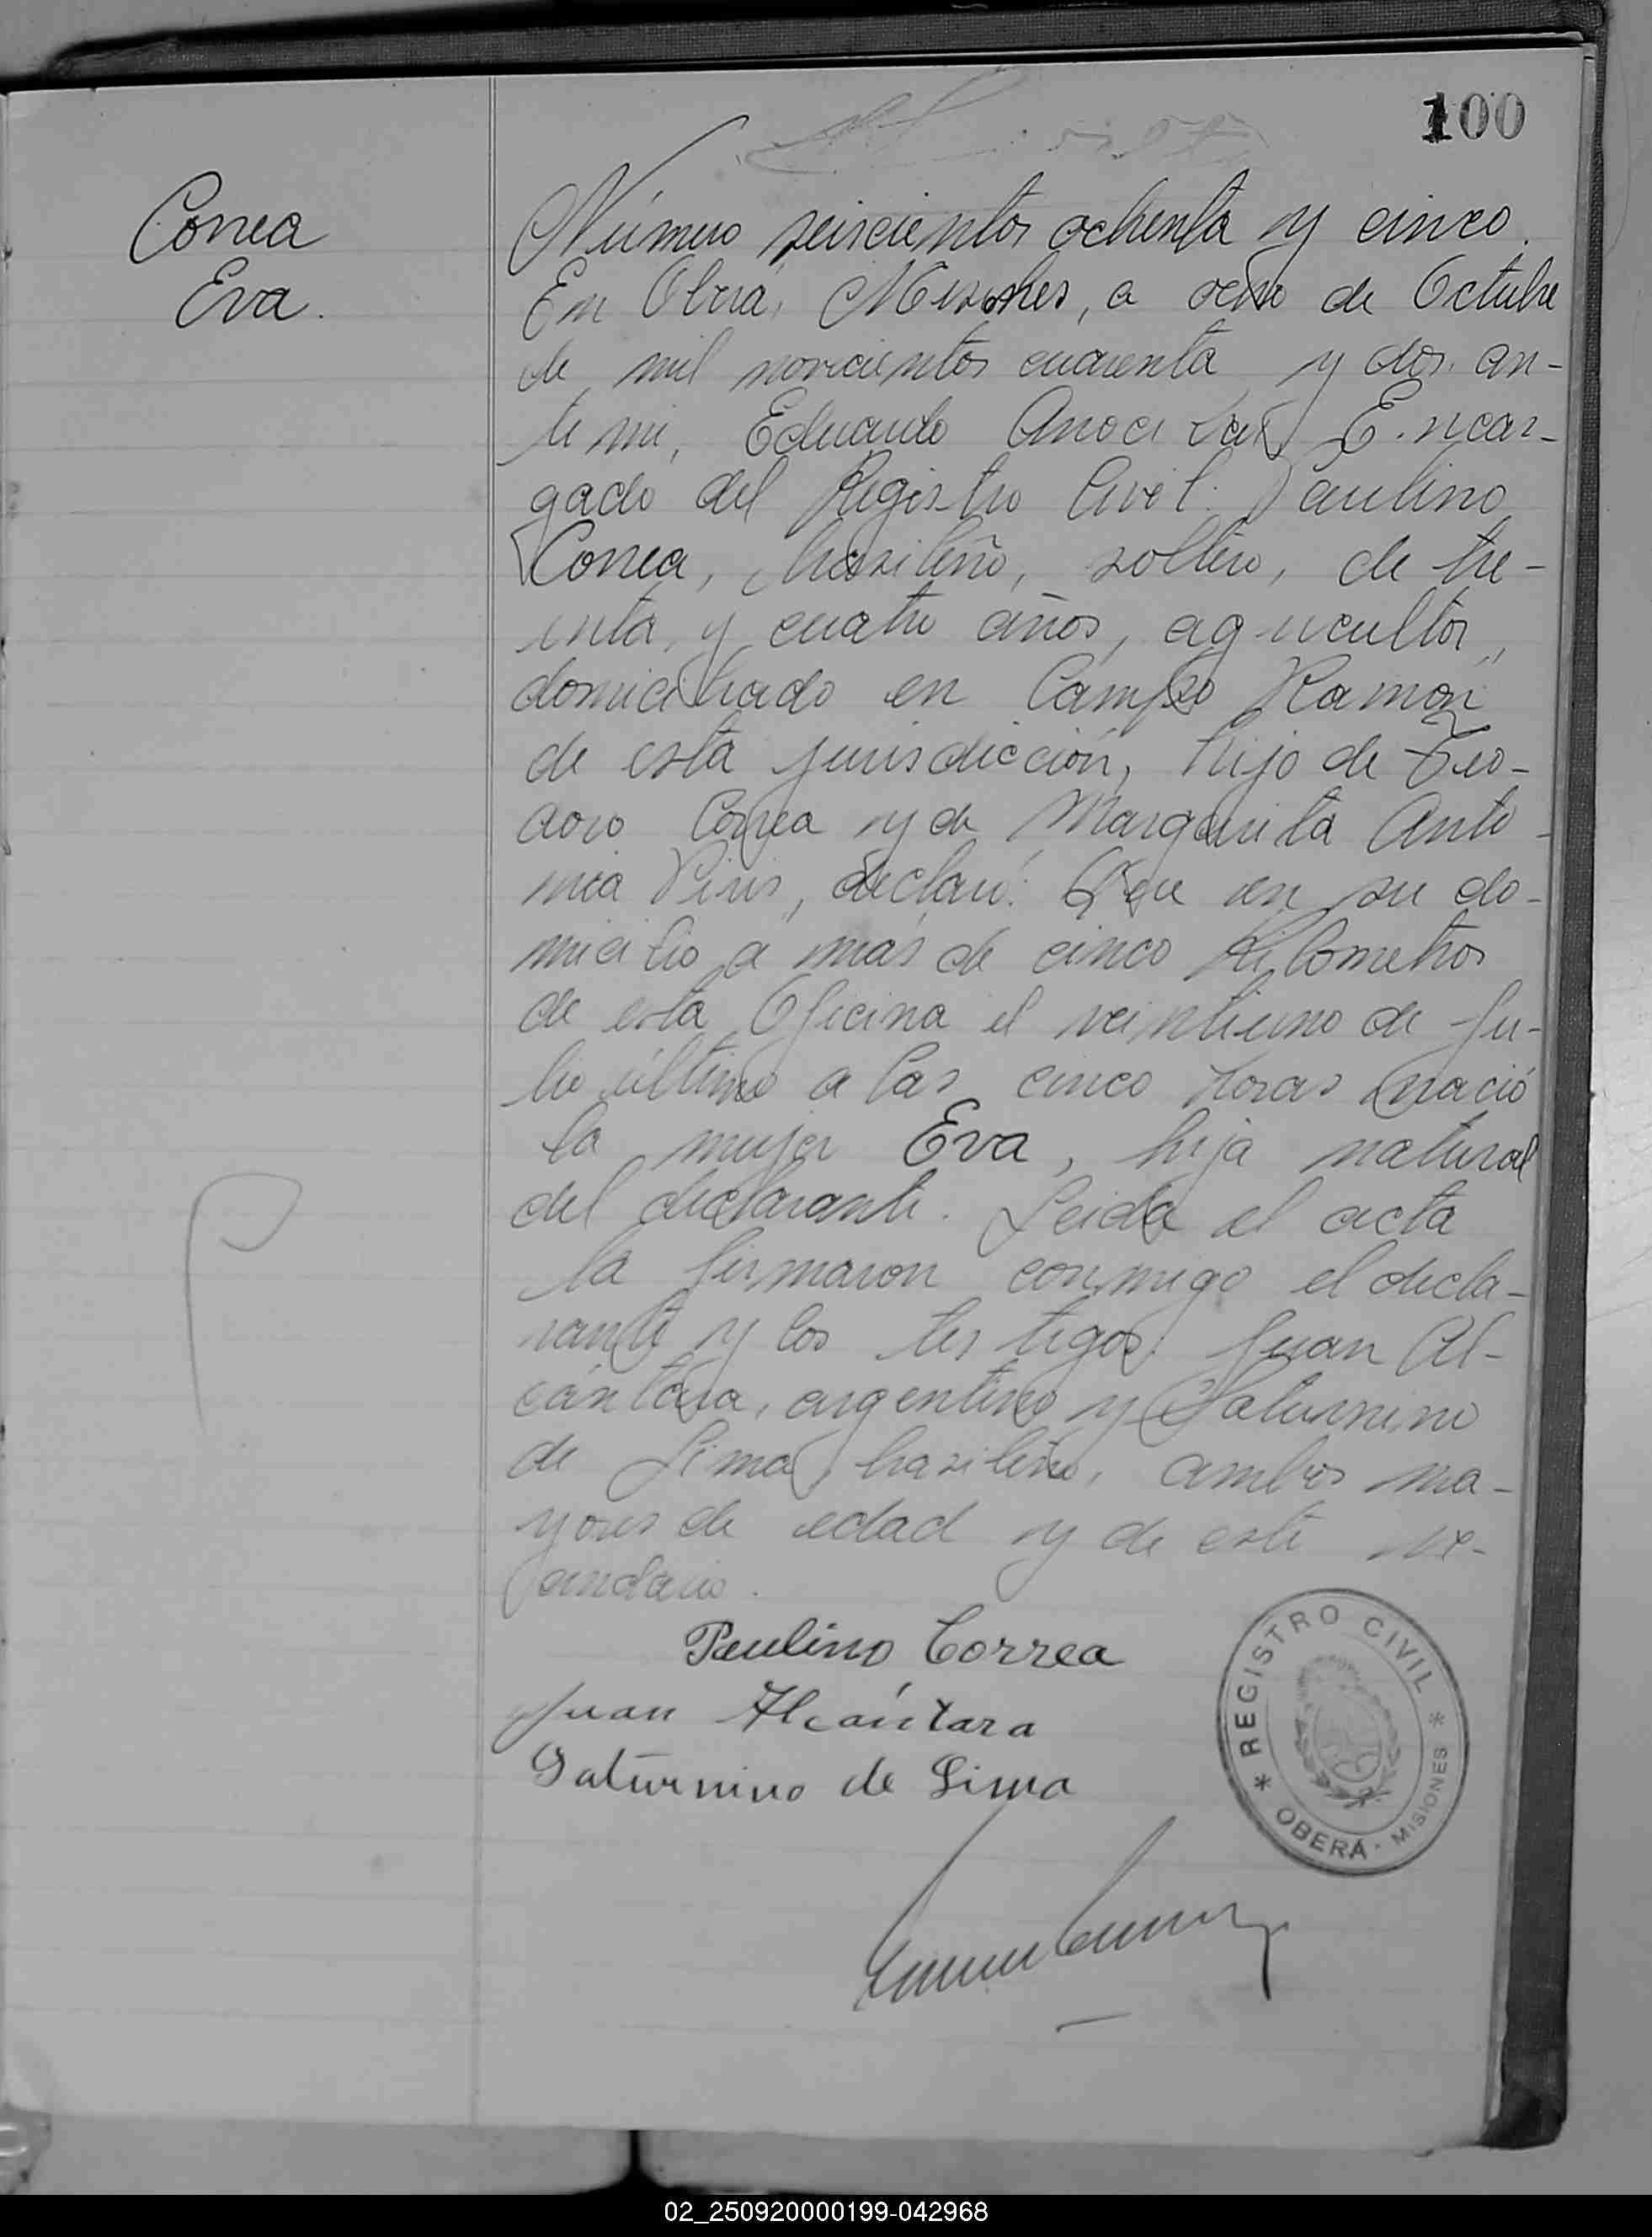 100
Correa
Eva.
Número seiscientos ochenta y cinco.
En Oberá, Misiones, a ocho de Octubre
de mil novecientos cuarenta y dos, an-
te mi, Eduardo Encar-
gado del Registro Civil: Paulino
Correa, brasileño, soltero, de tre-
inta y cuatro años, agricultor,
domiciliado en Campo Ramón
de esta jurisdicción, hijo de Teo-
doro Correa y de Margarita Anto-
nia Piris, declaró: Que en su do-
micilio a más de cinco kilometros
de esta Oficina el veintiuno de Ju-
lio último a las cinco horas nació
la mujer Eva, hija natural
del declarante. Leida el acta
la firmaron conmigo el decla-
rante y los testigos: Juan Al-
cántara, argentino y Saturnino
de Lima, brasileño, ambos ma-
yores de edad y de este ve-
cindario.
Paulino Correa
Juan Alcántara
Saturnino de Lima
* REGISTRO CIVIL *
OBERÁ - MISIONES
02_250920000199-042968